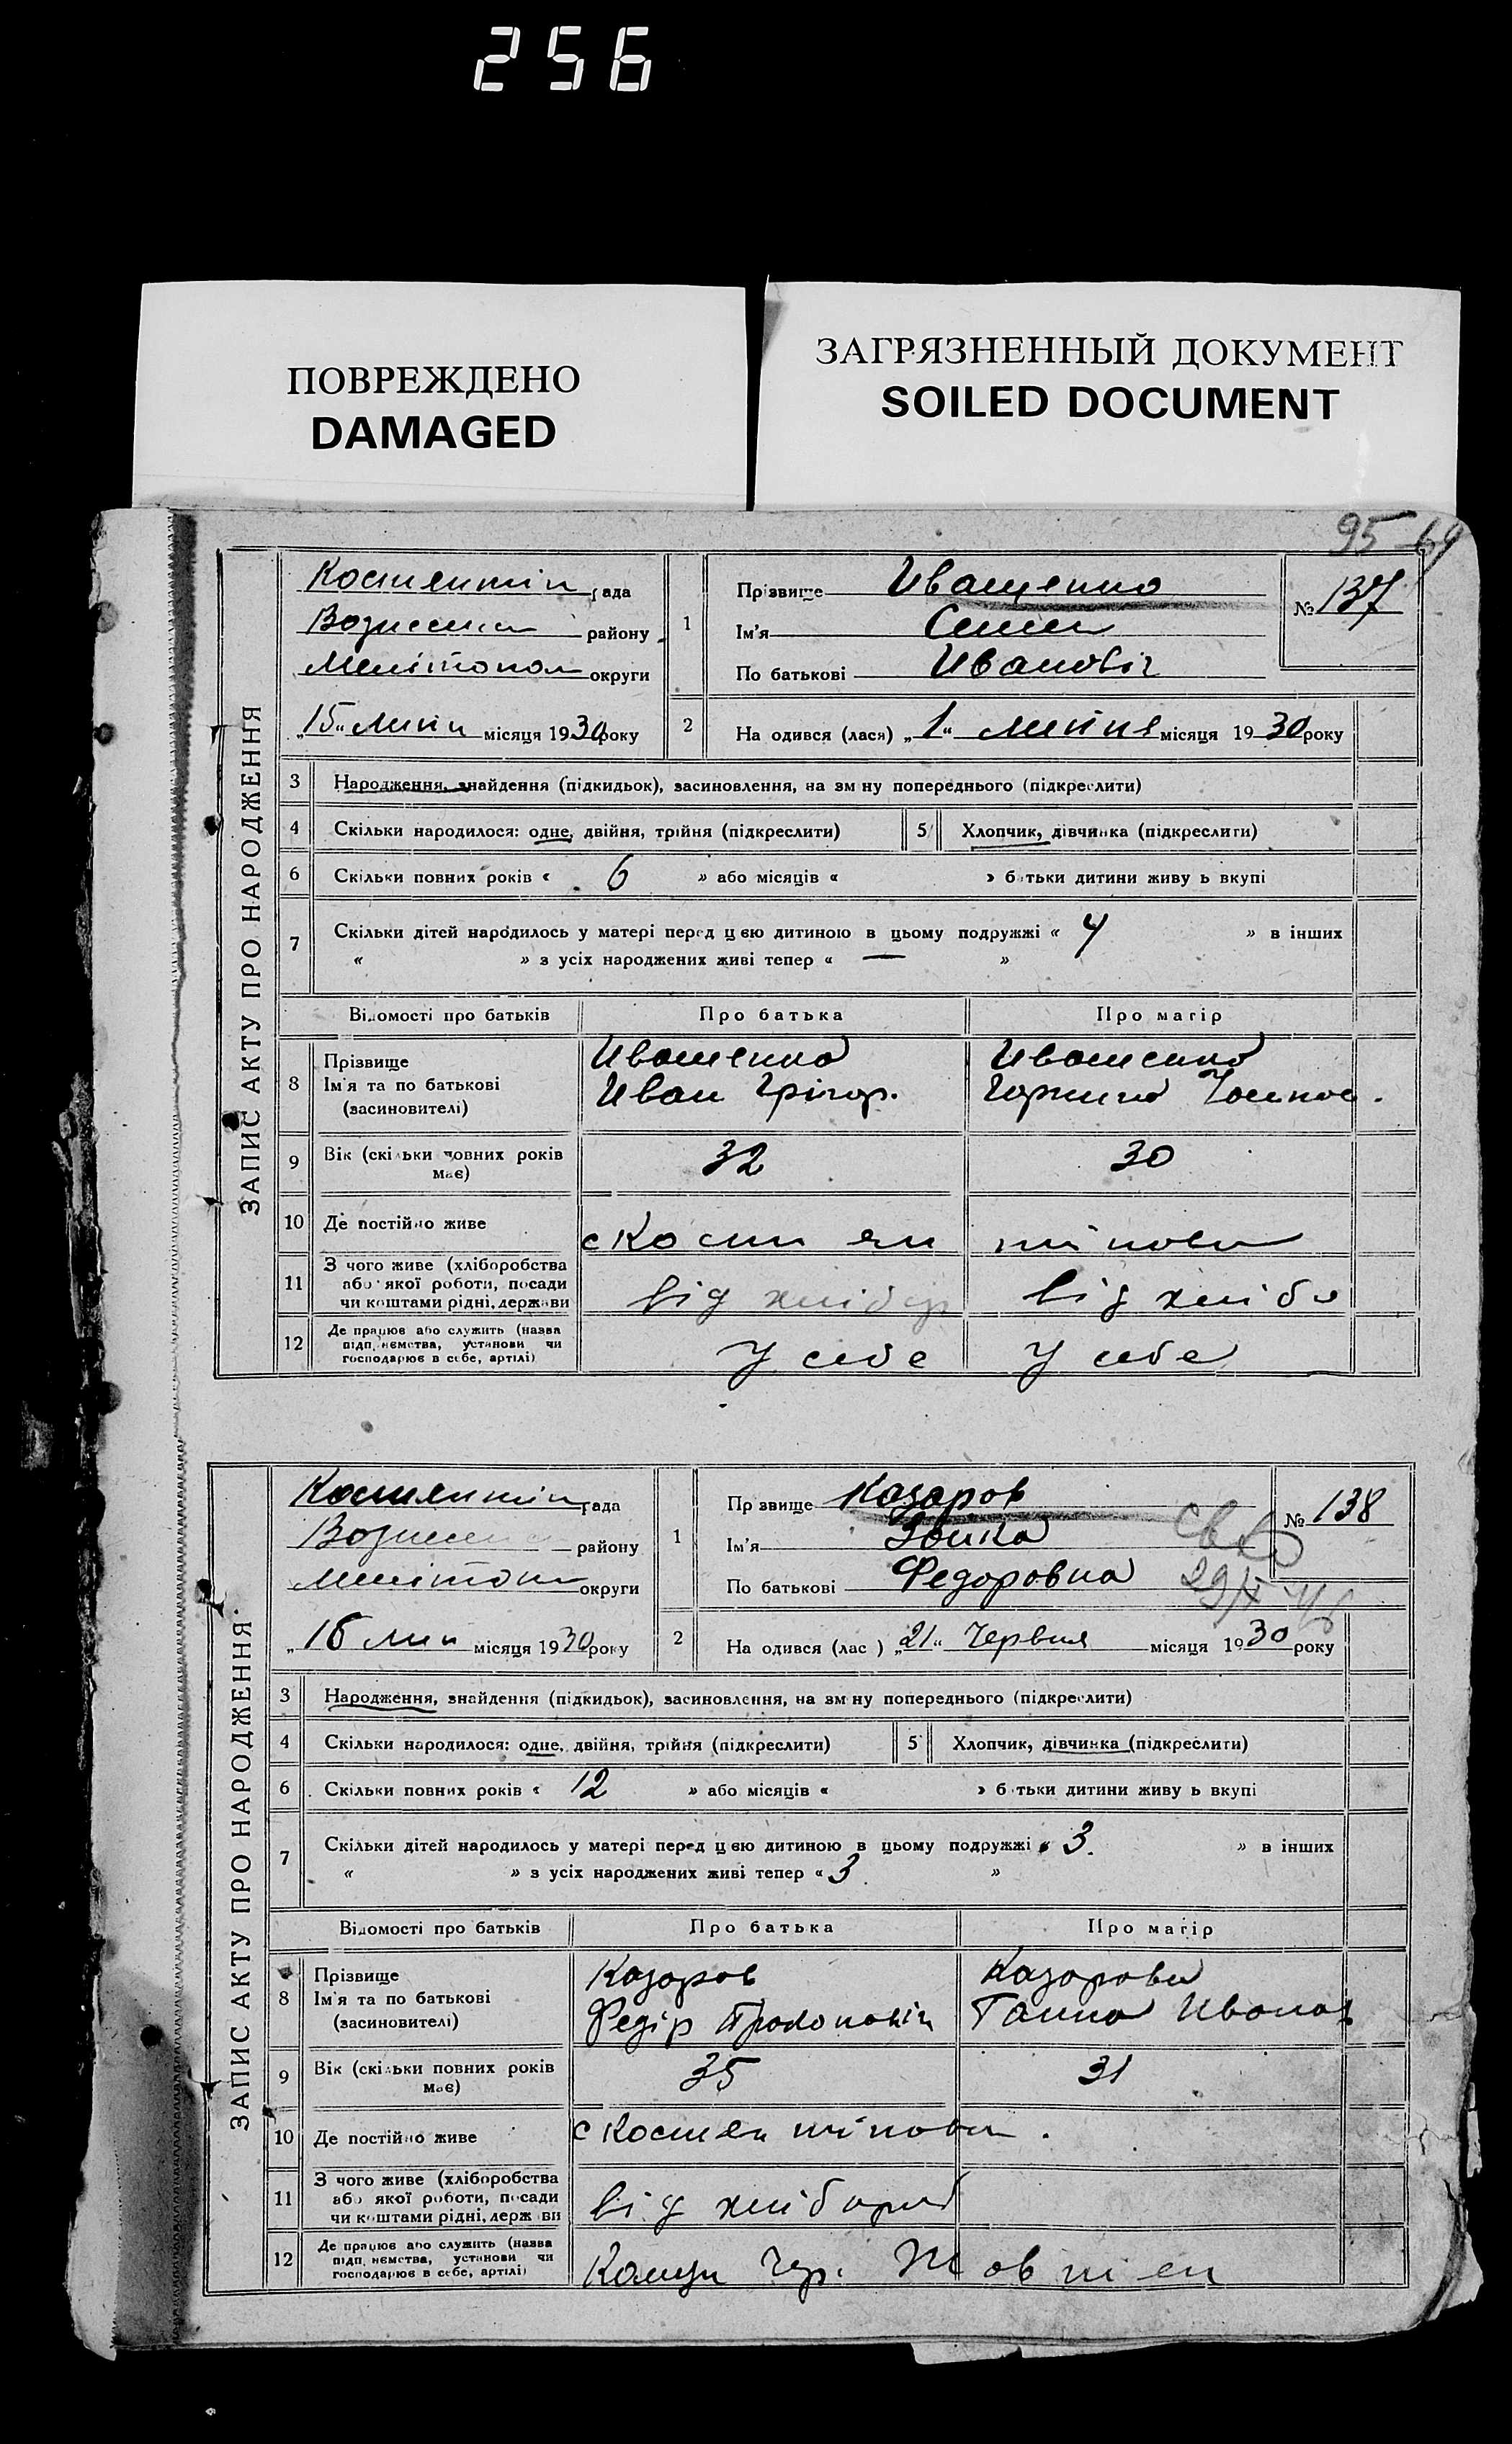 256
ПОВРЕЖДЕНО
DAMAGED
ЗАГРЯЗНЕННЫЙ ДОКУМЕНТ
SOILED DOCUMENT
95
ЗАПИС АКТУ ПРО НАРОДЖЕННЯ
Костянтін рада
района району
Мелітопол округи
„15“ Липн місяця 1930 року
1
Прізвище Иващенко
Ім'я Семен
По батькові Иванович
№ 137
2 На одився (лася) „1“ Липня місяця 1930 року
3 Народження, знайдення (підкидьок), засиновлення, на зм ну попереднього (підкреслити)
4 Скільки народилося: одне, двійня, трійня (підкреслити) 5 Хлопчик, дівчинка (підкреслити)
6 Скільки повних років « 6 » або місяців « » батьки дитини живу ь вкупі
7 Скільки дітей народилось у матері перед цею дитиною в цьому подружжі « 4 » в інших
« » з усіх народжених живі тепер « — »
Відомості про батьків Про батька Про матір
8 Прізвище
Ім'я та по батькові
(засиновителі)
Иващенко
Иван Грігор.
Иващенко
9 Вік (скільки повних років має) 32 30
10 Де постійно живе с Костянтіновка
11 З чого живе (хліборобства або якої роботи, посади чи коштами рідні, держави від хлібор від хліба
12 Де працює або служить (назва підп, ємства, установи чи господарює в себе, артілі) У себе У себе
ЗАПИС АКТУ ПРО НАРОДЖЕННЯ
Костянтін рада
району
Мелітоп округи
„15 Лип місяця 1930 року
1
Пр звище Козоров
Ім'я
По батькові Федоровна
№ 138
2 На одився (лас ) „21“ Червня місяця 1930 року
3 Народження, знайдення (підкидьок), засиновлення, на зм ну попереднього (підкреслити)
4 Скільки народилося: одне, двійня, трійня (підкреслити) 5 Хлопчик, дівчинка (підкреслити)
6 Скільки повних років « 12 » або місяців « » б тьки дитини живу ь вкупі
7 Скільки дітей народилось у матері перед цею дитиною в цьому подружжі « 3. » в інших
« » з усіх народжених живі тепер « 3 »
Відомості про батьків Про батька Про матір
8 Прізвище
Ім'я та по батькові
(засиновителі)
Козоров
Федір
Козорова
Ганна Иванов
9 Вік (скільки повних років має) 35 31
10 Де постійно живе с Костянтіновка.
11 З чого живе (хліборобства або якої роботи, посади чи коштами рідні, держ ви від хлібороб
12 Де працює або служить (назва підп, ємства, установи чи господарює в себе, артілі) Комун Чер. Жовтен